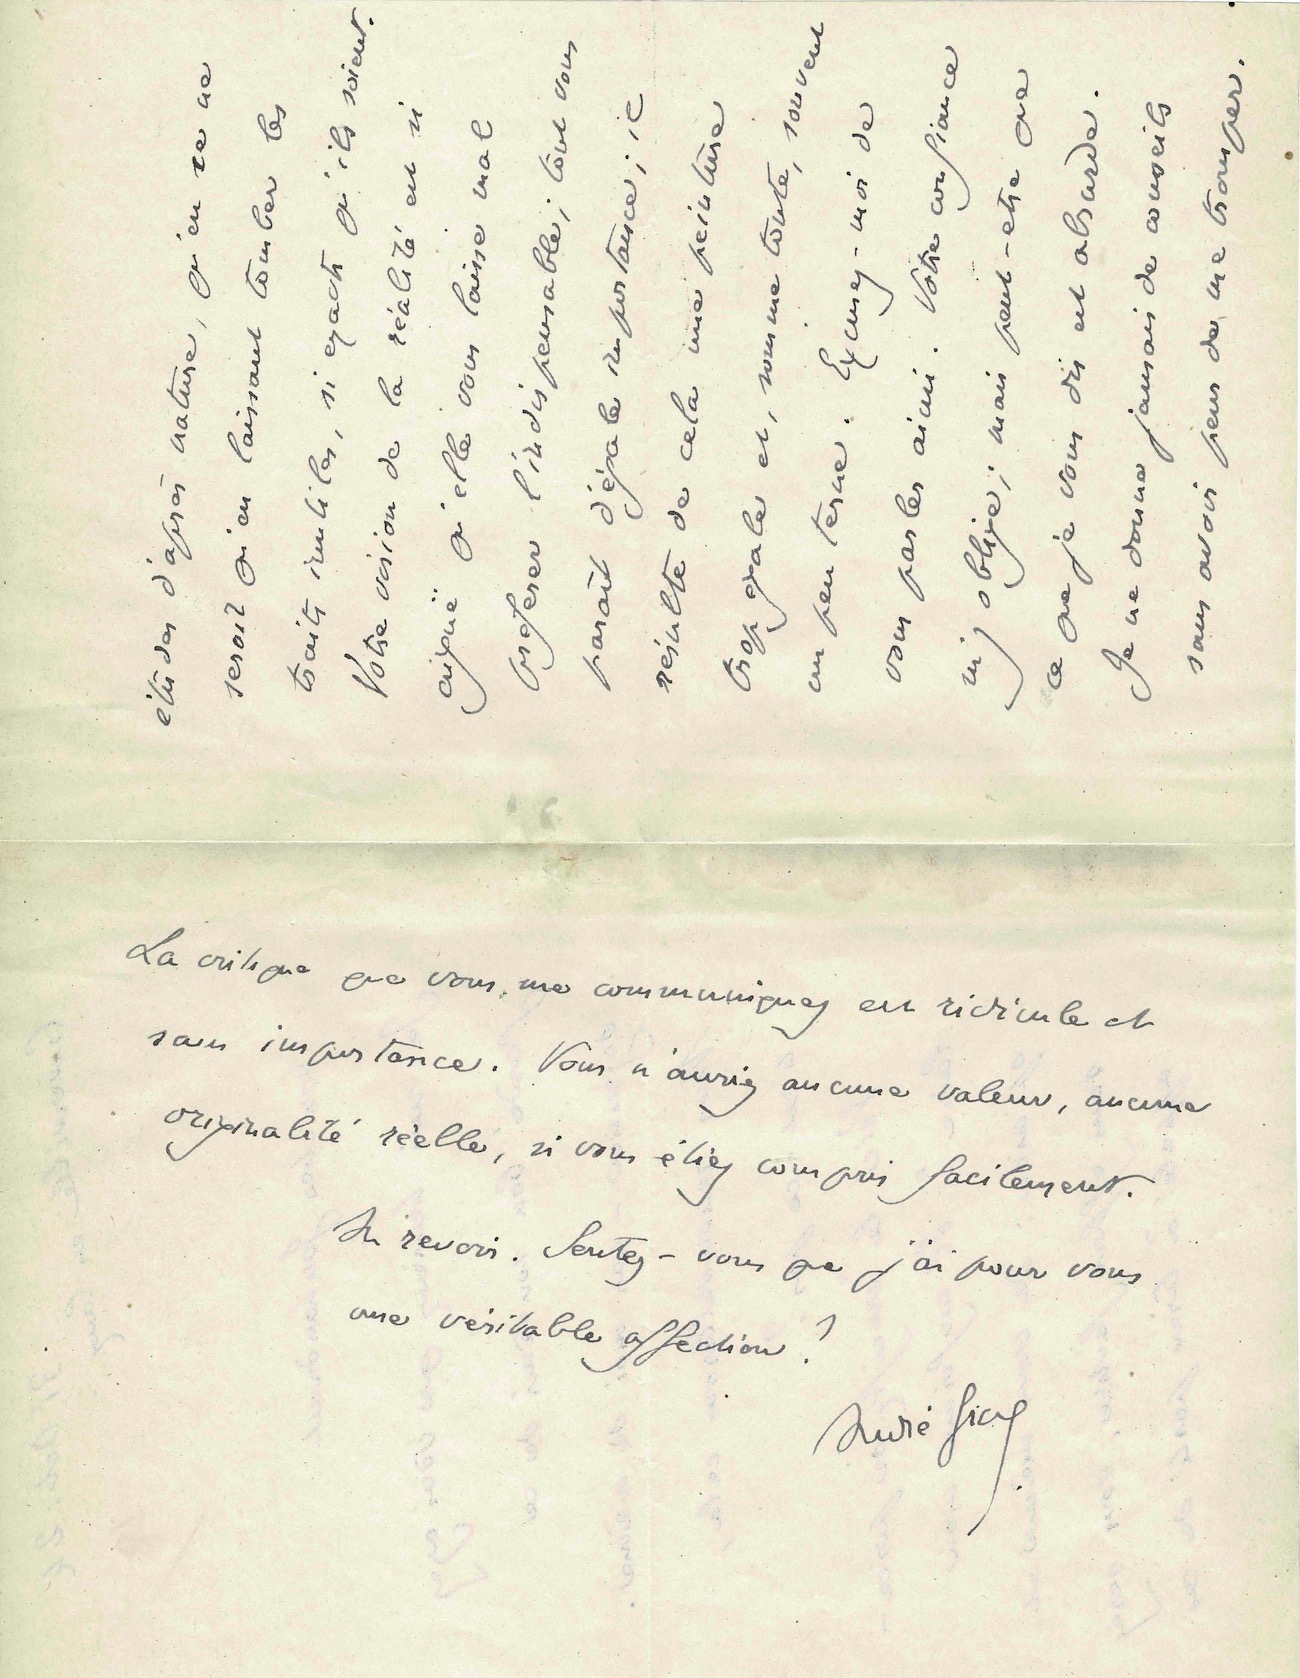 études d'après nature, qu'en ce ne
serait qu'en laissant tomber les
traits inutiles, si exacts qu'ils soient.
Votre vision de la réalité est si
aiguë qu'elle vous laisse mal
préférer l'indispensable ; tout vous
paraît d'égale importance ; il
résulte de cela une peinture
trop égale et, somme toute, souvent
un peu terne. Excusez-moi de
vous parler ainsi. Votre confiance
m'y oblige ; mais peut-etre que
ce que je vous dis est absurde.
Je ne donne jamais de conseils
sans avoir peur de me tromper.
La critique que vous me communiquez est ridicule et
sans importance. Vous n'auriez aucune valeur, aucune
originalité réelle, si vous étiez compris facilement.
Au revoir. Sentez-vous que j'ai pour vous
une véritable affection ?
André Gide